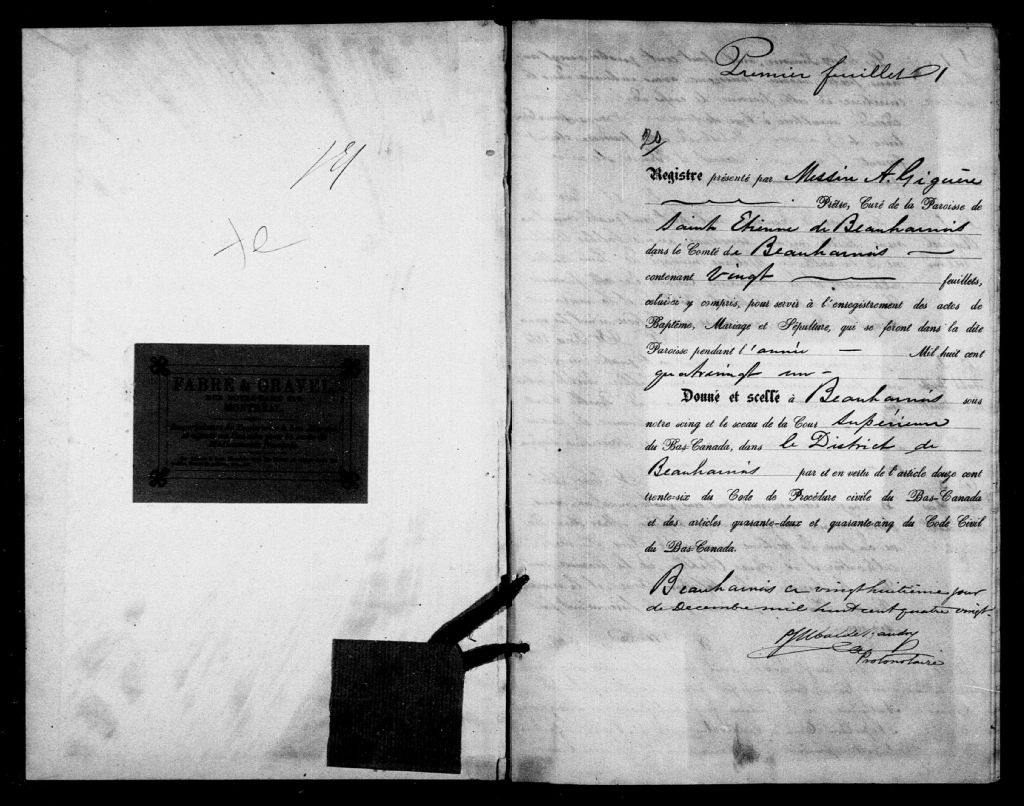 FABRE & GRAVEL
RUE NOTRE-DAME
MONTRÉAL
Premier feuillet 1
Registre présenté par Messire A. Giguère
Prêtre, Curé de la Paroisse de
Saint Etienne de Beauharnois
dans le Comté de Beauharnois
contenant Vingt feuillets,
celui-ci y compris, pour servir à l'enregistrement des actes de
Baptême, Mariage et Sépulture, qui se feront dans la dite
Paroisse pendant l'année Mil huit cent
quatrevingt un -
Donné et scellé à Beauharnois sous
notre seing et le sceau de la Cour Supérieure
du Bas-Canada, dans le District de
Beauharnois par et en vertu de l'article douze cent
trente-six du Code de Procédure civile du Bas-Canada
et des articles quarante-deux et quarante-cinq du Code Civil
du Bas-Canada.
Beauharnois ce vingt huitième jour
de Decembre mil huit cent quatre vingt.
Protonotaire